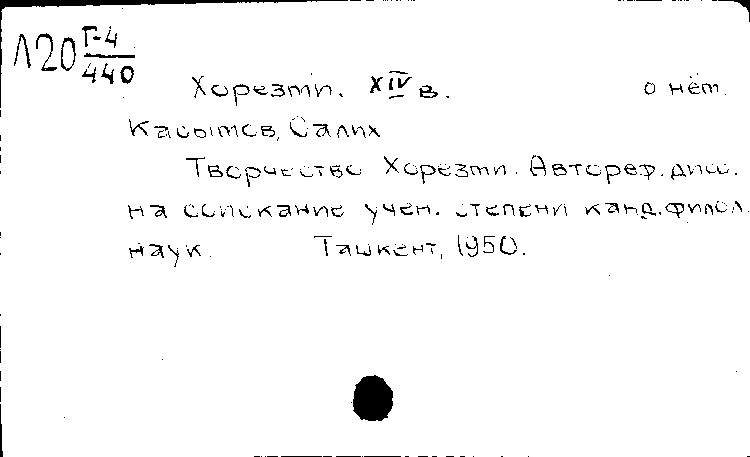 Л20 Г-4/440
Хорезми. XIV в. о нём.
Касымов, Салих
Творчество Хорезми. Автореф. дисс.
на соискание учен. степени канд. филол.
наук. Ташкент, 1950.